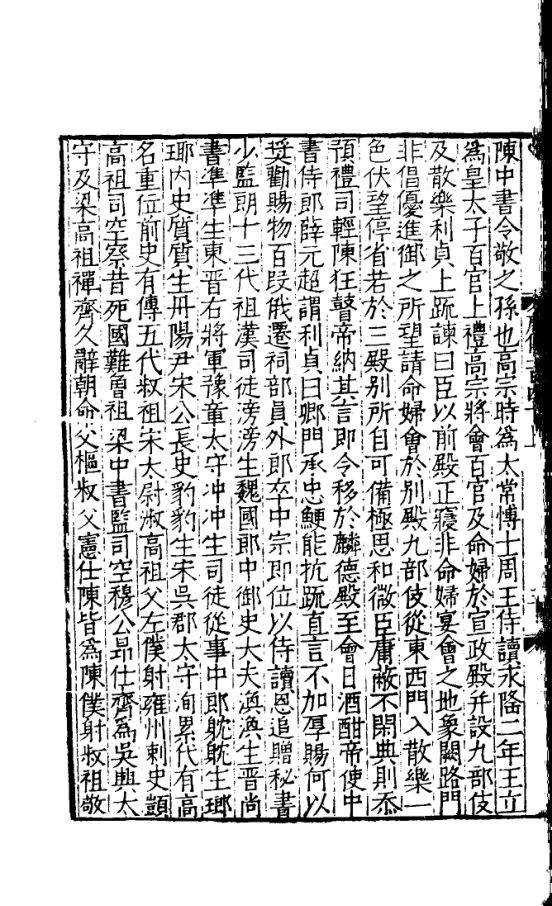 陳中書令敬之孫也高宗時爲太常博士周王侍讀永隆二年王立
爲皇太子百官上禮高宗將會百官及命婦於宣政殿并設九部伎
及散樂利貞上䟽諫曰臣以前殿正寢非命婦宴會之地象闕路門
非倡優進御之所望請命婦會於别殿九部伎從東西門入散樂一
色伏望停省若於三殿别所自可備極恩和微臣庸蔽不閑典則忝
預禮司輕陳狂瞽帝納其言即令移於麟德殿至會日酒酣帝使中
書侍郎薛元超謂利貞曰卿門承忠鯁能抗䟽直言不加厚賜何以
奨勸賜物百段俄遷祠部員外郎卒中宗即位以侍讀恩追贈秘書
少監朗十三代祖漢司徒滂滂生魏國郎中御史大夫渙渙生晋尚
書凖凖生東晋右將軍豫章太守冲冲生司徒從事中郎躭躭生瑯
瑘内史質質生丹陽尹宋公長史豹豹生宋吳郡太守洵累代有高
名重位前史有傳五代叔祖宋太尉淑高祖父左僕射雍州刺史顗
高祖司空粲昔死國難曾祖梁中書監司空穆公昂仕齊爲吳興太
守及梁高祖禪齊久辭朝命父樞叔父憲仕陳皆爲陳僕射叔祖敬